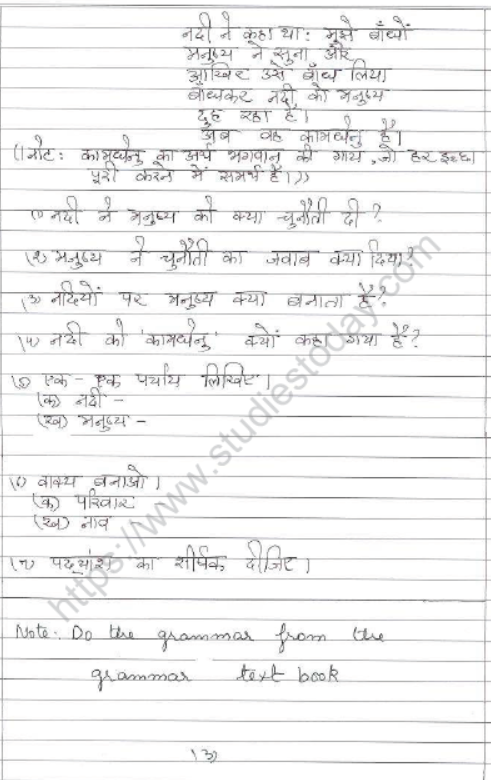 नदी ने कहा था: मुझे बाँधों
मनुष्य ने सुना और
आखिर उसे बाँध लिया
बाँधकर नदी को मनुष्य
दुह रहा है।
अब वह कामधेनु है।
(नोट: कामधेनु का अर्थ भगवान की गाय, जो हर इच्छा
पूरी करने में समर्थ है।))
(१) नदी ने मनुष्य को क्या चुनौती दी?
(२) मनुष्य ने चुनौती का जवाब क्या दिया?
(३) नदियों पर मनुष्य क्या बनाता है?
(४) नदी को 'कामधेनु' क्यों कहा गया है?
(५) एक - एक पर्याय लिखिए।
(क) नदी -
(ख) मनुष्य -
(६) वाक्य बनाओ।
(क) परिवार
(ख) नाव
(७) पद्यांश का शीर्षक दीजिए।
Note:- Do the grammar from the
grammar text book
(3)
https://www.studiestoday.com